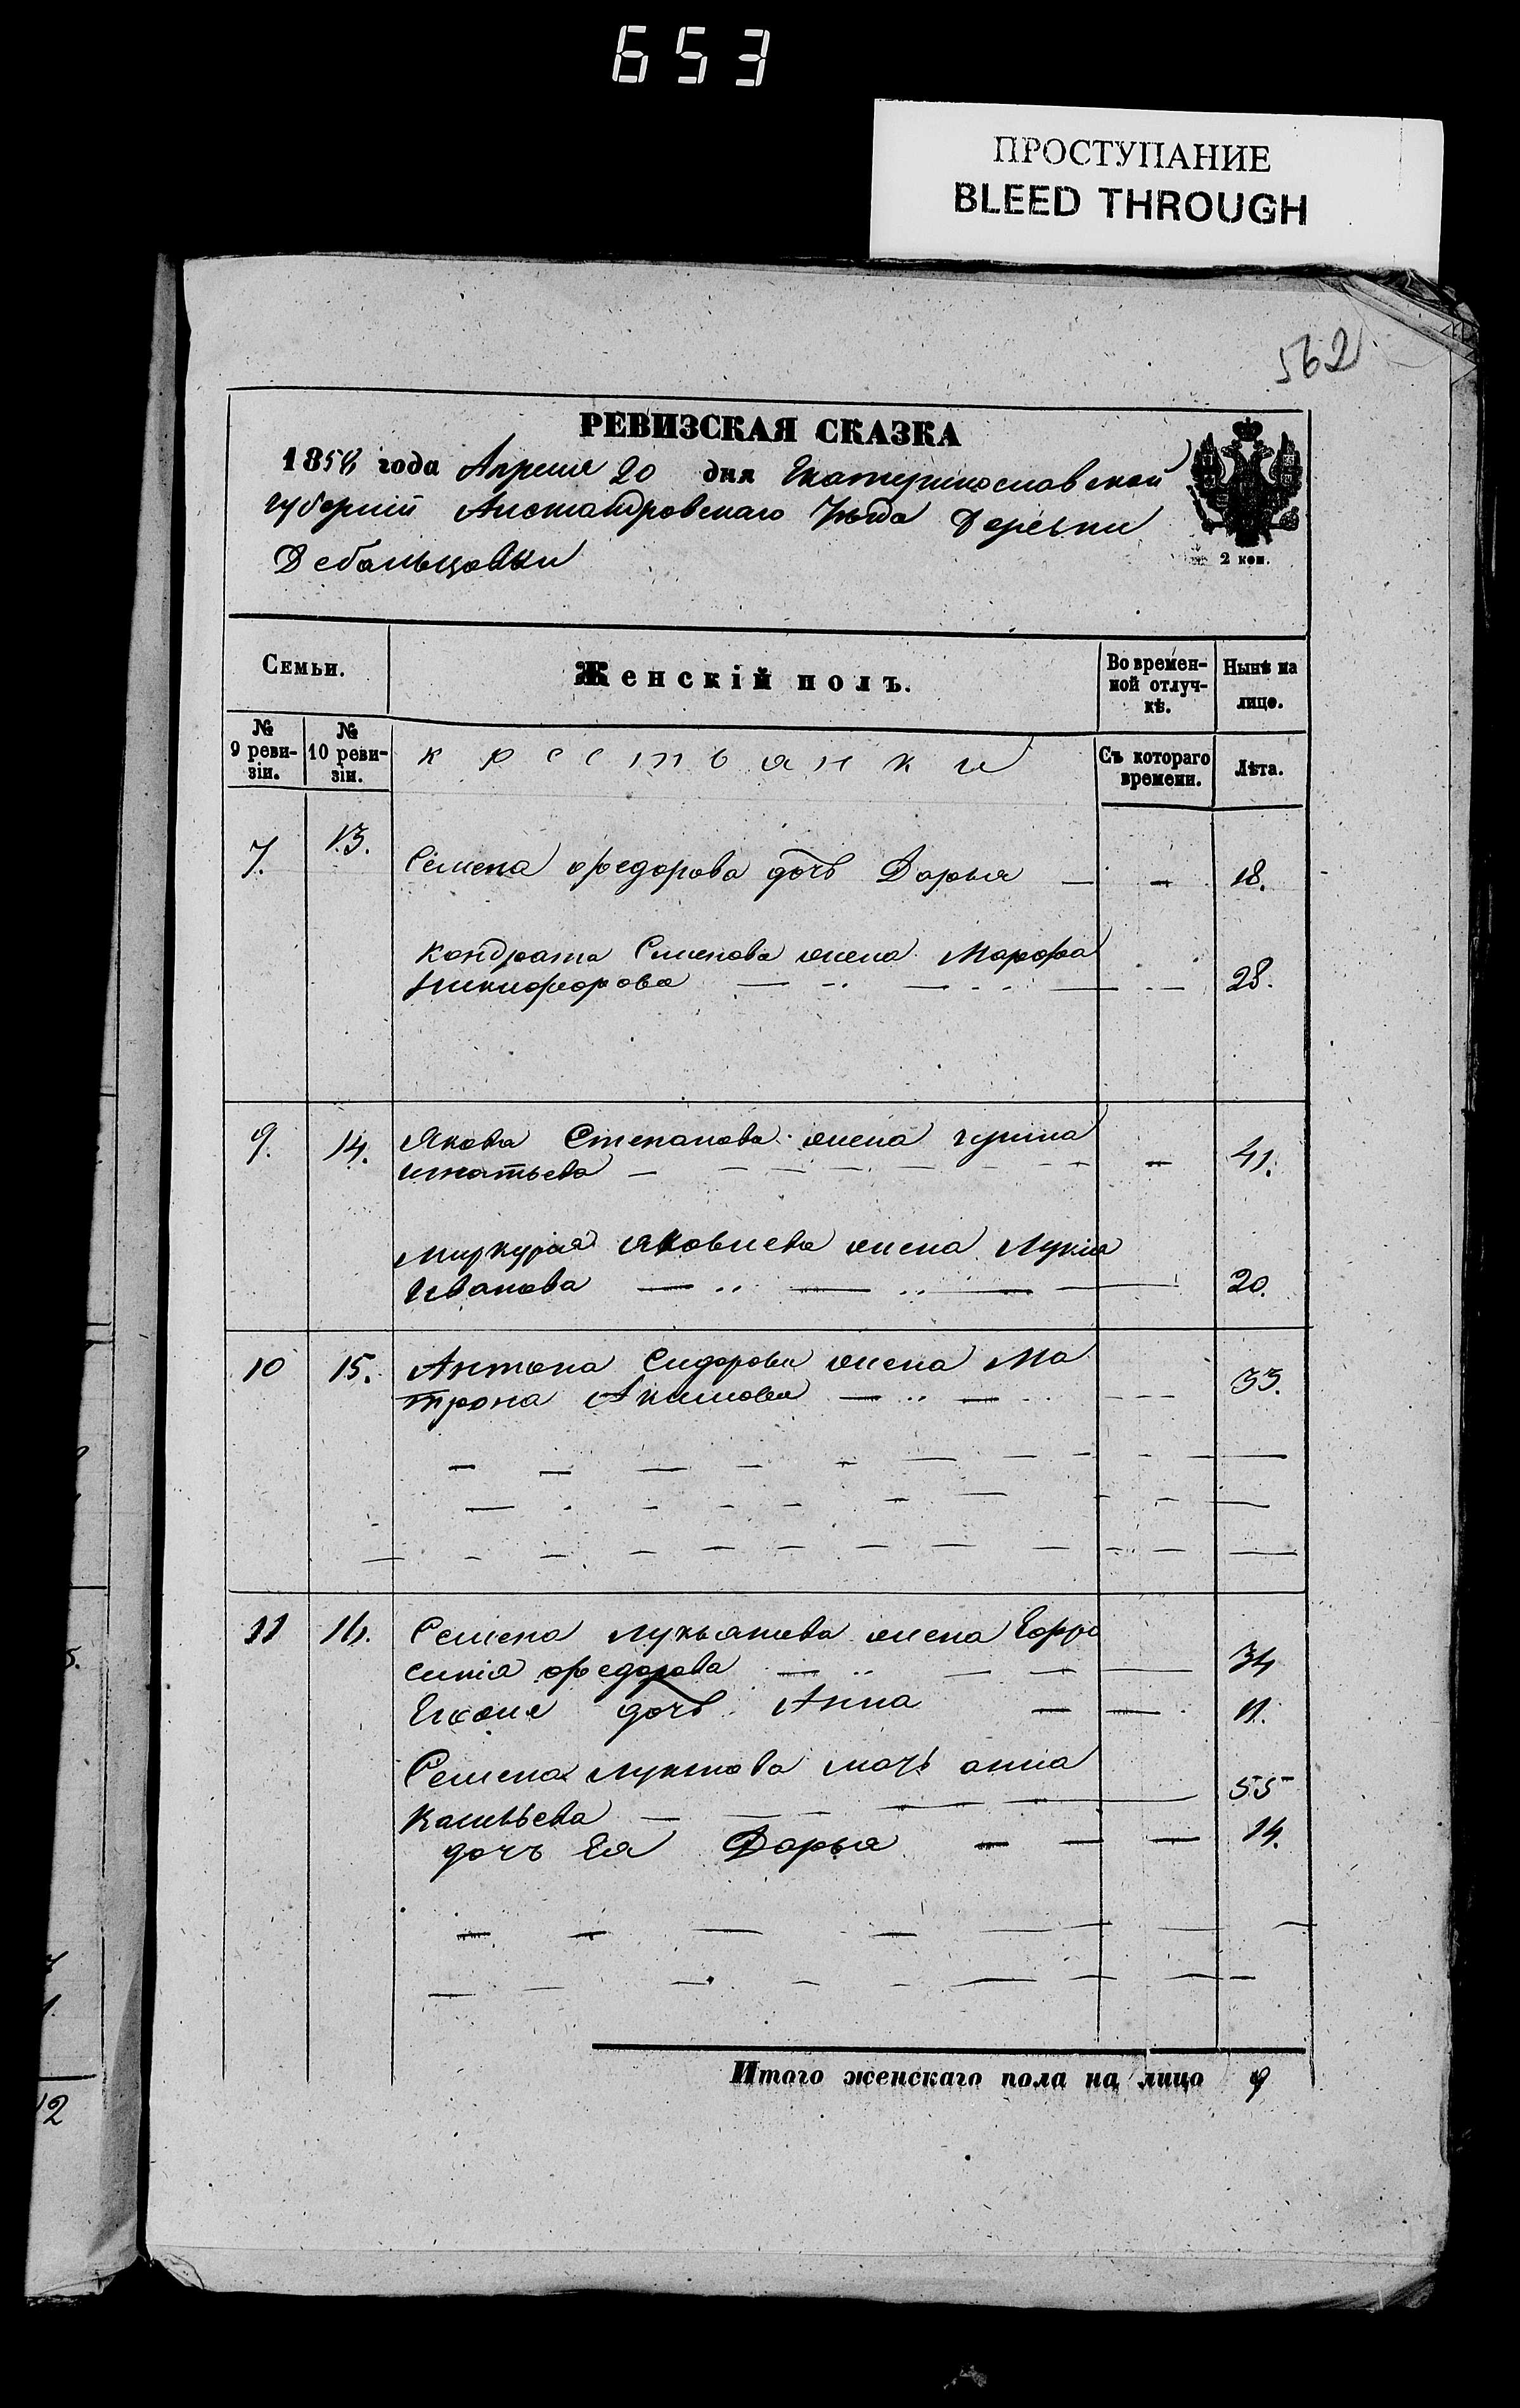 653
ПРОСТУПАНИЕ
BLEED THROUGH
562
РЕВИЗСКАЯ СКАЗКА
1858 года Апреля 20 дня Екатеринославской
губернии Александровскаго Уезда Деревни
Дебальцовки
2 коп.
Семьи.
Женскій полъ.
Во времен-
ной отлуч-
кѣ.
Нынѣ на
лице.
№
9 реви-
зіи.
№
10 реви-
зіи.
крестьянки
Съ котораго
времени.
Лѣта.
7. 13.
Семена Федорова дочь Дарья 18.
Кондрата Семенова жена Марфа
Никифорова 28.
9. 14. Якова Степанова жена
Игнатьева 41.
Миркурия Яковлева жена Лукия
Иванова 20.
10 15. Антона Сидорова жена Ма
трона Акимова 33.
11 16. Семена Лукьянова жена Евфро
синия Федорова 34
дочь Анна 11.
Семена Лукянова мать Анна
55
дочь Ея Дарья 14.
Итого женскаго пола на лицо 9
5.
12